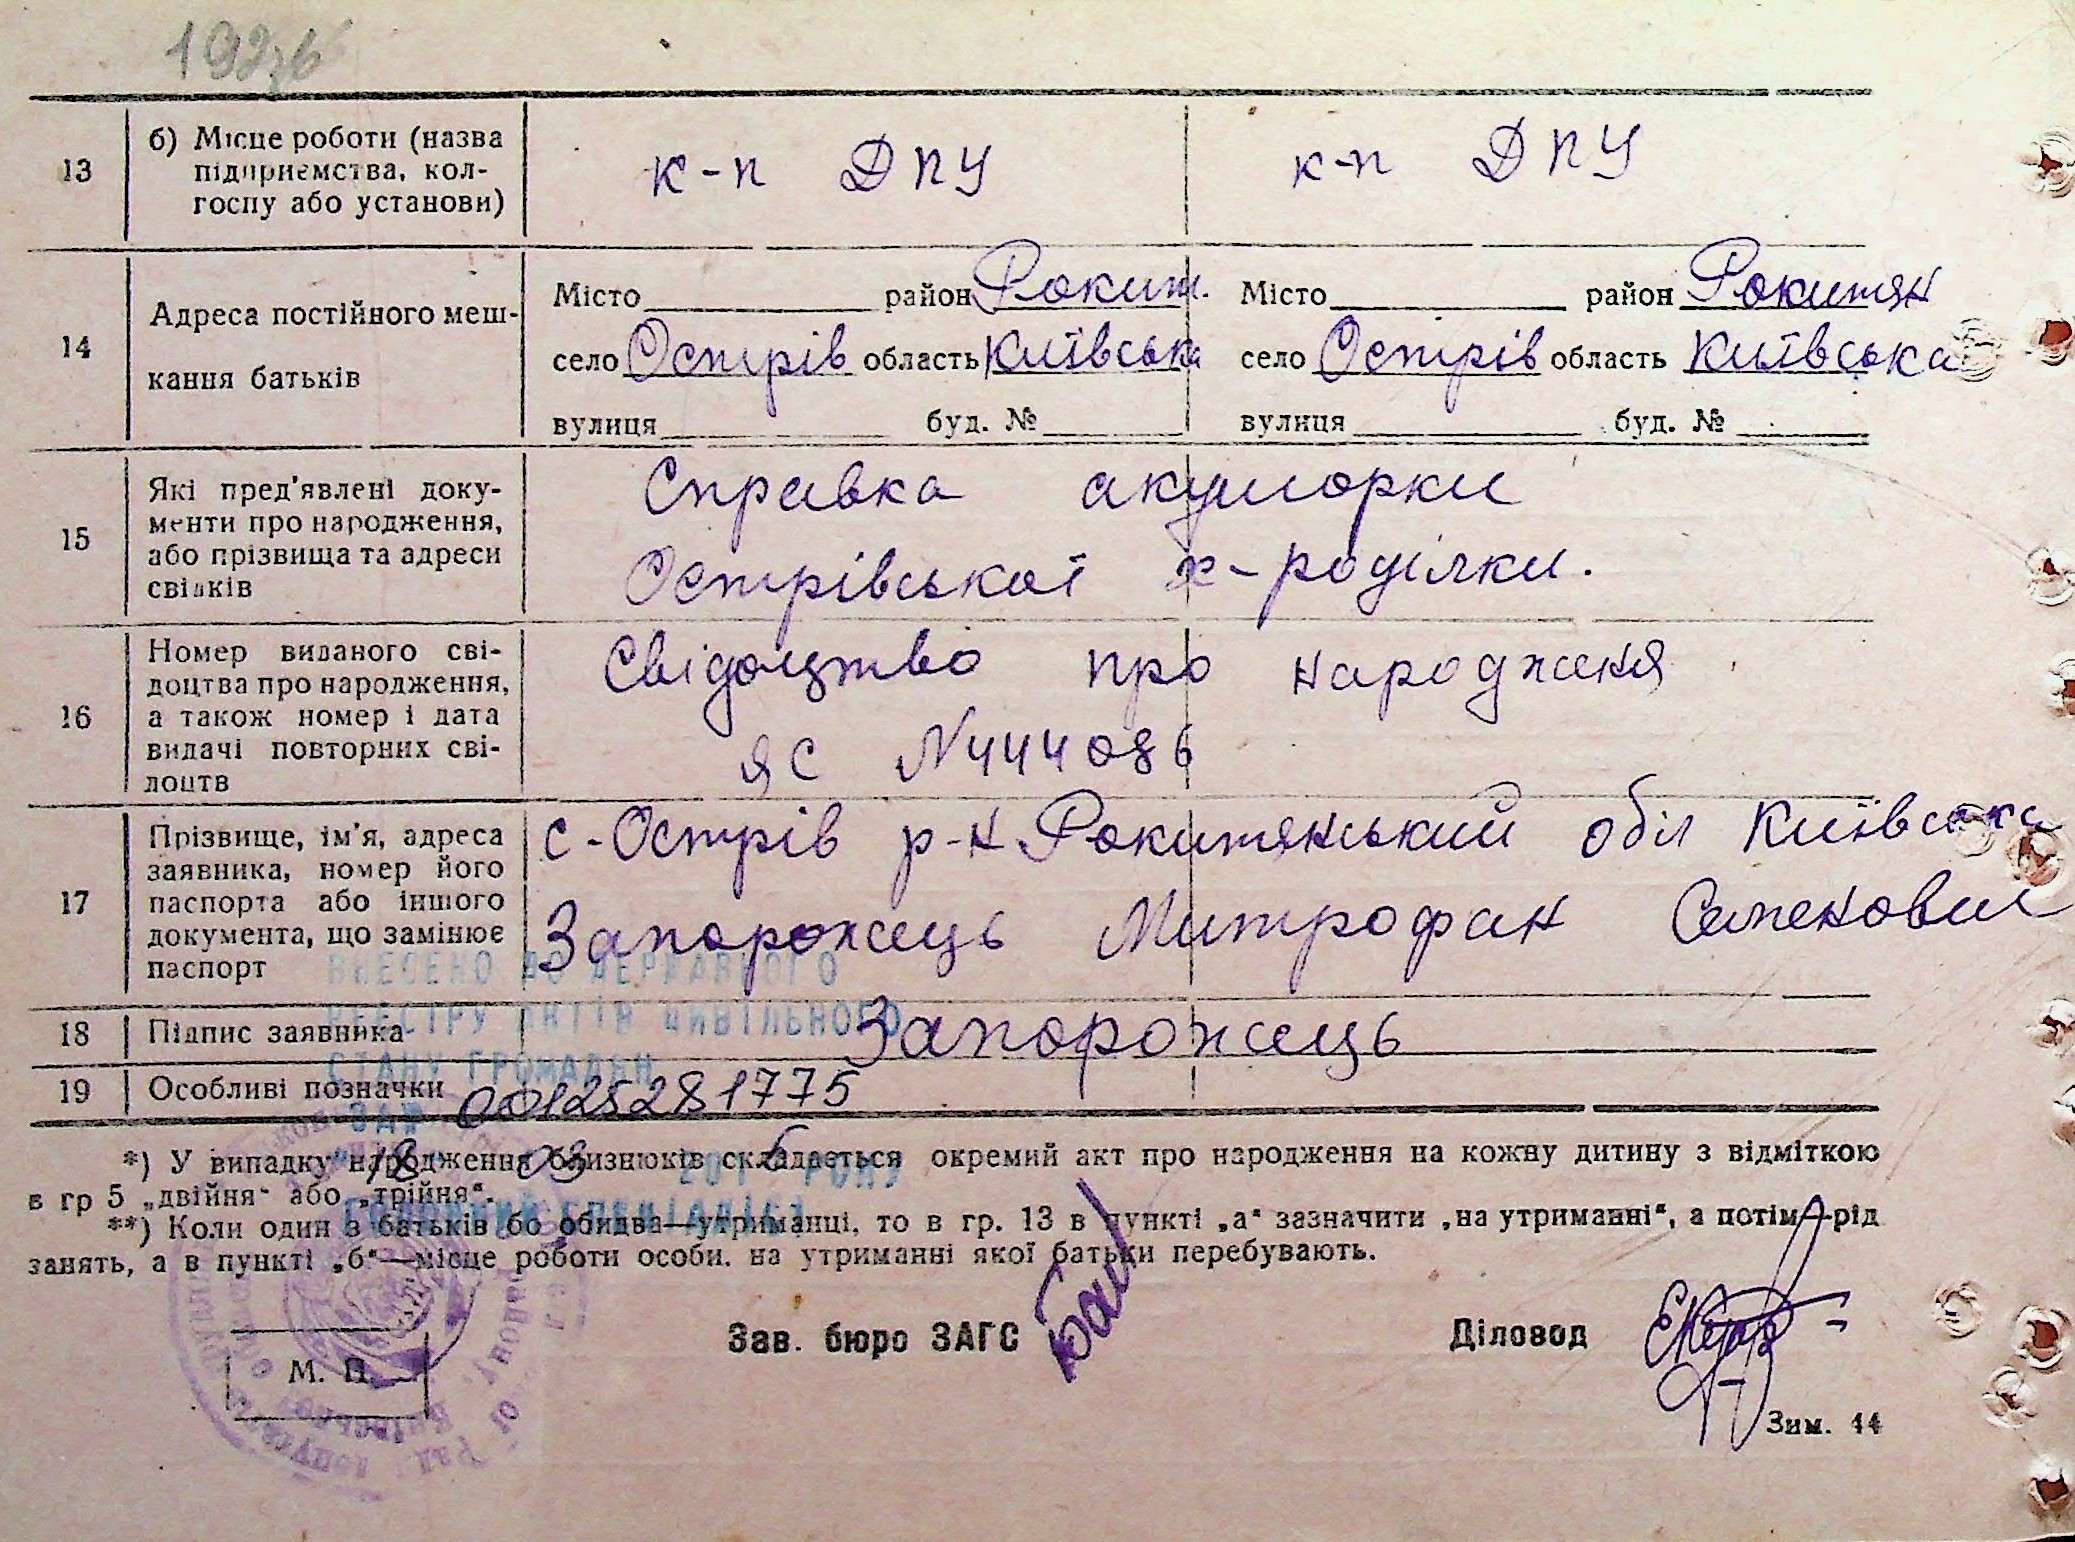 13
б) Місце роботи (назва
підприємства, кол-
госпу або установи)
к-п ДПУ
к-п ДПУ
14
Адреса постійного меш-
кання батьків
Місто район Рокит.
село Острів область Київська
вулиця буд. №
Місто район Рокитян
село Острів область Київська
вулиця буд. №
15
Які пред'явлені доку-
менти про народження,
або прізвища та адреси
свідків
Справка акушорки
Острівської х-роділки.
16
Номер виданого сві-
доцтва про народження,
а також номер і дата
видачі повторних сві-
доцтв
Свідоцтво про народженя
ЯС N444086
17
Прізвище, ім'я, адреса
заявника, номер його
паспорта або іншого
документа, що замінює
паспорт
с-Острів р-н Рокитянський обл Київська
Запорожець Митрофан Семенович
18
Підпис заявника
Запорожець
19
Особливі позначки
00125281775
ВНЕСЕНО ДО ДЕРЖАВНОГО
РЕЄСТРУ АКТІВ ЦИВІЛЬНОГО
СТАНУ ГРОМАДЯН
ЗА №
18 03 2016 РОКУ
ГОЛОВНИЙ СПЕЦІАЛІСТ
*) У випадку народження близнюків складається окремий акт про народження на кожну дитину з відміткою
в гр 5 „двійня“ або „трійня“.
**) Коли один з батьків бо обидва—утриманці, то в гр. 13 в пункті „а“ зазначити „на утриманні“, а потім—рід
занять, а в пункті „б“—місце роботи особи. на утриманні якої батьки перебувають.
Зав. бюро ЗАГС
Діловод
М. П.
Зим. 44